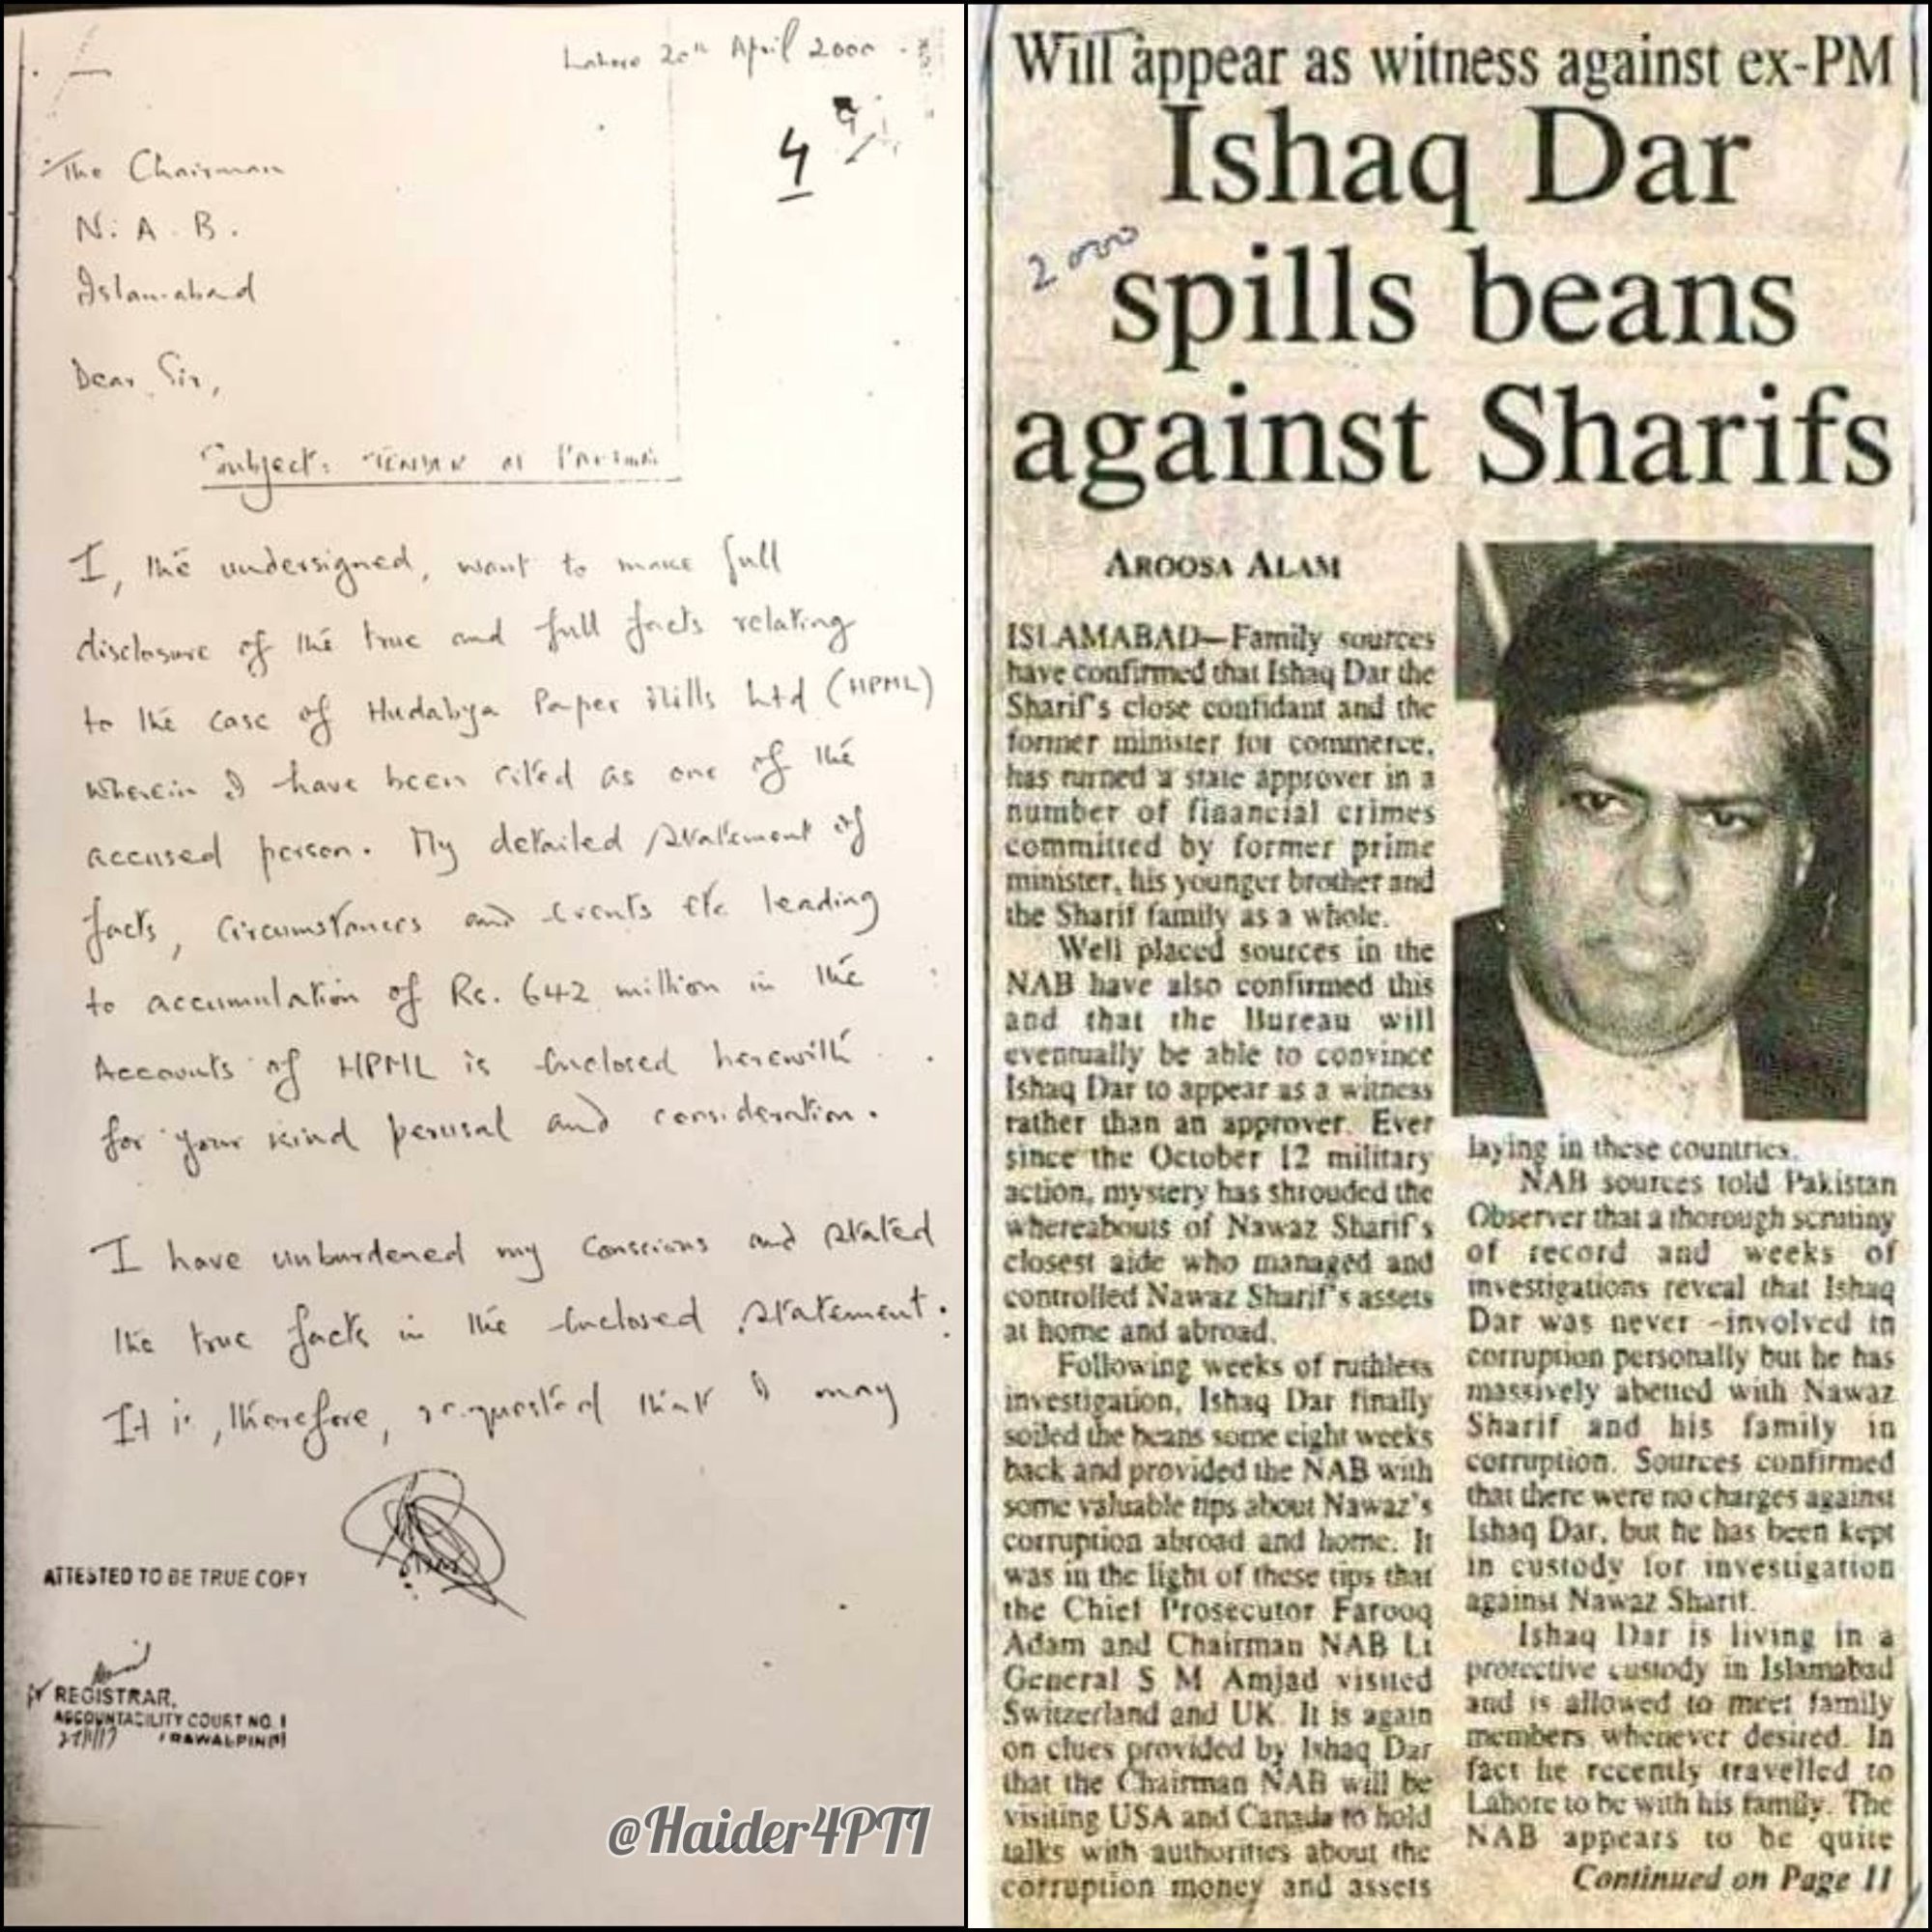 Lahore 20th April 2000
4
The Chairman
N. A. B.
Islamabad
Dear Sir,
Subject: TENDER OF PARDON
I, the undersigned, want to make full
disclosure of the true and full facts relating
to the case of Hudabya Paper Mills Ltd (HPML)
wherein I have been cited as one of the
accused person. My detailed statement of
facts, circumstances and events etc leading
to accumulation of Rs. 642 million in the
Accounts of HPML is enclosed herewith
for your kind perusal and consideration.
I have unburdened my conscious and stated
the true facts in the enclosed statement.
It is, therefore, requested that I may
ATTESTED TO BE TRUE COPY
REGISTRAR,
ACCOUNTABILITY COURT NO. I
RAWALPINDI
@Haider4PTI
Will appear as witness against ex-PM
Ishaq Dar
2000
spills beans
against Sharifs
AROOSA ALAM
ISLAMABAD—Family sources
have confirmed that Ishaq Dar the
Sharif's close confidant and the
former minister for commerce,
has turned a state approver in a
number of financial crimes
committed by former prime
minister, his younger brother and
the Sharif family as a whole.
Well placed sources in the
NAB have also confirmed this
and that the Bureau will
eventually be able to convince
Ishaq Dar to appear as a witness
rather than an approver. Ever
since the October 12 military
action, mystery has shrouded the
whereabouts of Nawaz Sharif's
closest aide who managed and
controlled Nawaz Sharif's assets
at home and abroad.
Following weeks of ruthless
investigation, Ishaq Dar finally
soiled the beans some eight weeks
back and provided the NAB with
some valuable tips about Nawaz's
corruption abroad and home. It
was in the light of these tips that
the Chief Prosecutor Farooq
Adam and Chairman NAB Lt
General S M Amjad visited
Switzerland and UK. It is again
on clues provided by Ishaq Dar
that the Chairman NAB will be
visiting USA and Canada to hold
talks with authorities about the
corruption money and assets
laying in these countries.
NAB sources told Pakistan
Observer that a thorough scrutiny
of record and weeks of
investigations reveal that Ishaq
Dar was never -involved in
corruption personally but he has
massively abetted with Nawaz
Sharif and his family in
corruption. Sources confirmed
that there were no charges against
Ishaq Dar, but he has been kept
in custody for investigation
against Nawaz Sharif.
Ishaq Dar is living in a
protective custody in Islamabad
and is allowed to meet family
members whenever desired. In
fact he recently travelled to
Lahore to be with his family. The
NAB appears to be quite
Continued on Page 11